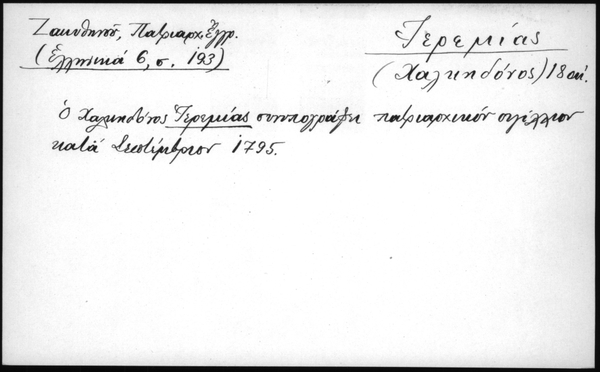 Ζακυθηνοῦ, Πατριαρχ. Ἔγγρ.
(Ἑλληνικά 6, σ. 193)
Ἱερεμίας
(Χαλκηδόνος) 18 αἰ.
Ὁ Χαλκηδόνος Ἱερεμίας συνυπογράφει πατριαρχικόν σιγίλλιον
κατά Σεπτέμβριον 1795.